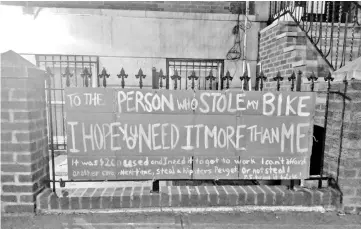 TO THE PERSON WHO STOLE MY BIKE
I HOPE YOU NEED IT MORE THAN ME
It was $200 used and I need to get to work I can't afford
another one. Next time, steal a hipsters Peugeot or not steal!